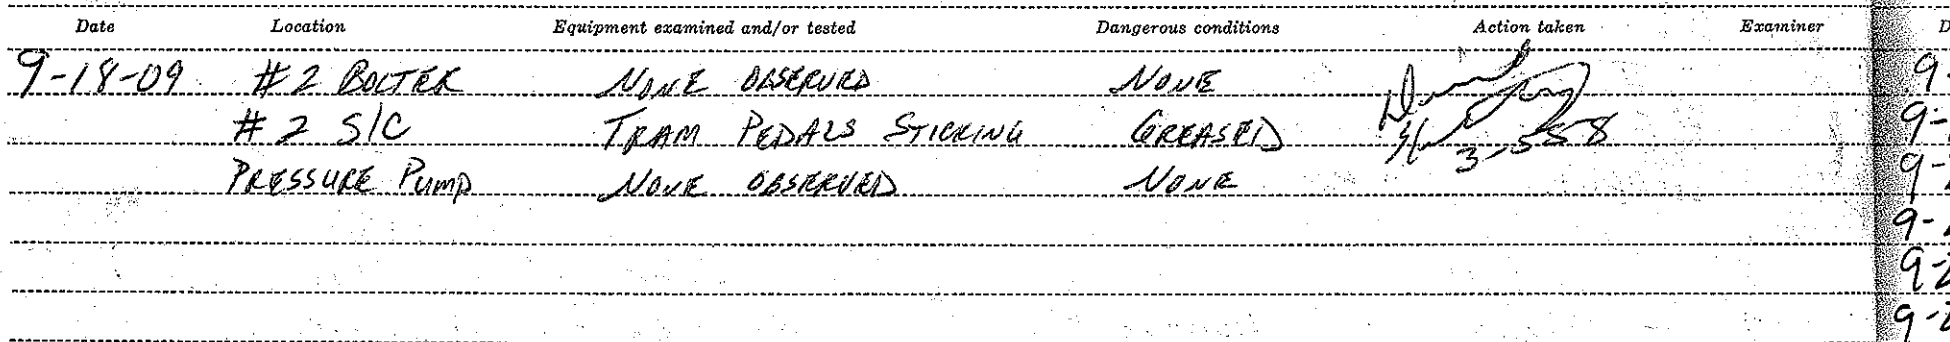 Date Location Equipment examined and/or tested Dangerous conditions Action taken Examiner D
9-18-09 #2 BOLTER NONE OBSERVED NONE 9-
#2 S/C TRAM PEDALS STICKING GREASED 3-558 9-
PRESSURE PUMP NONE OBSERVED NONE 9-
9-
9-2
9-2